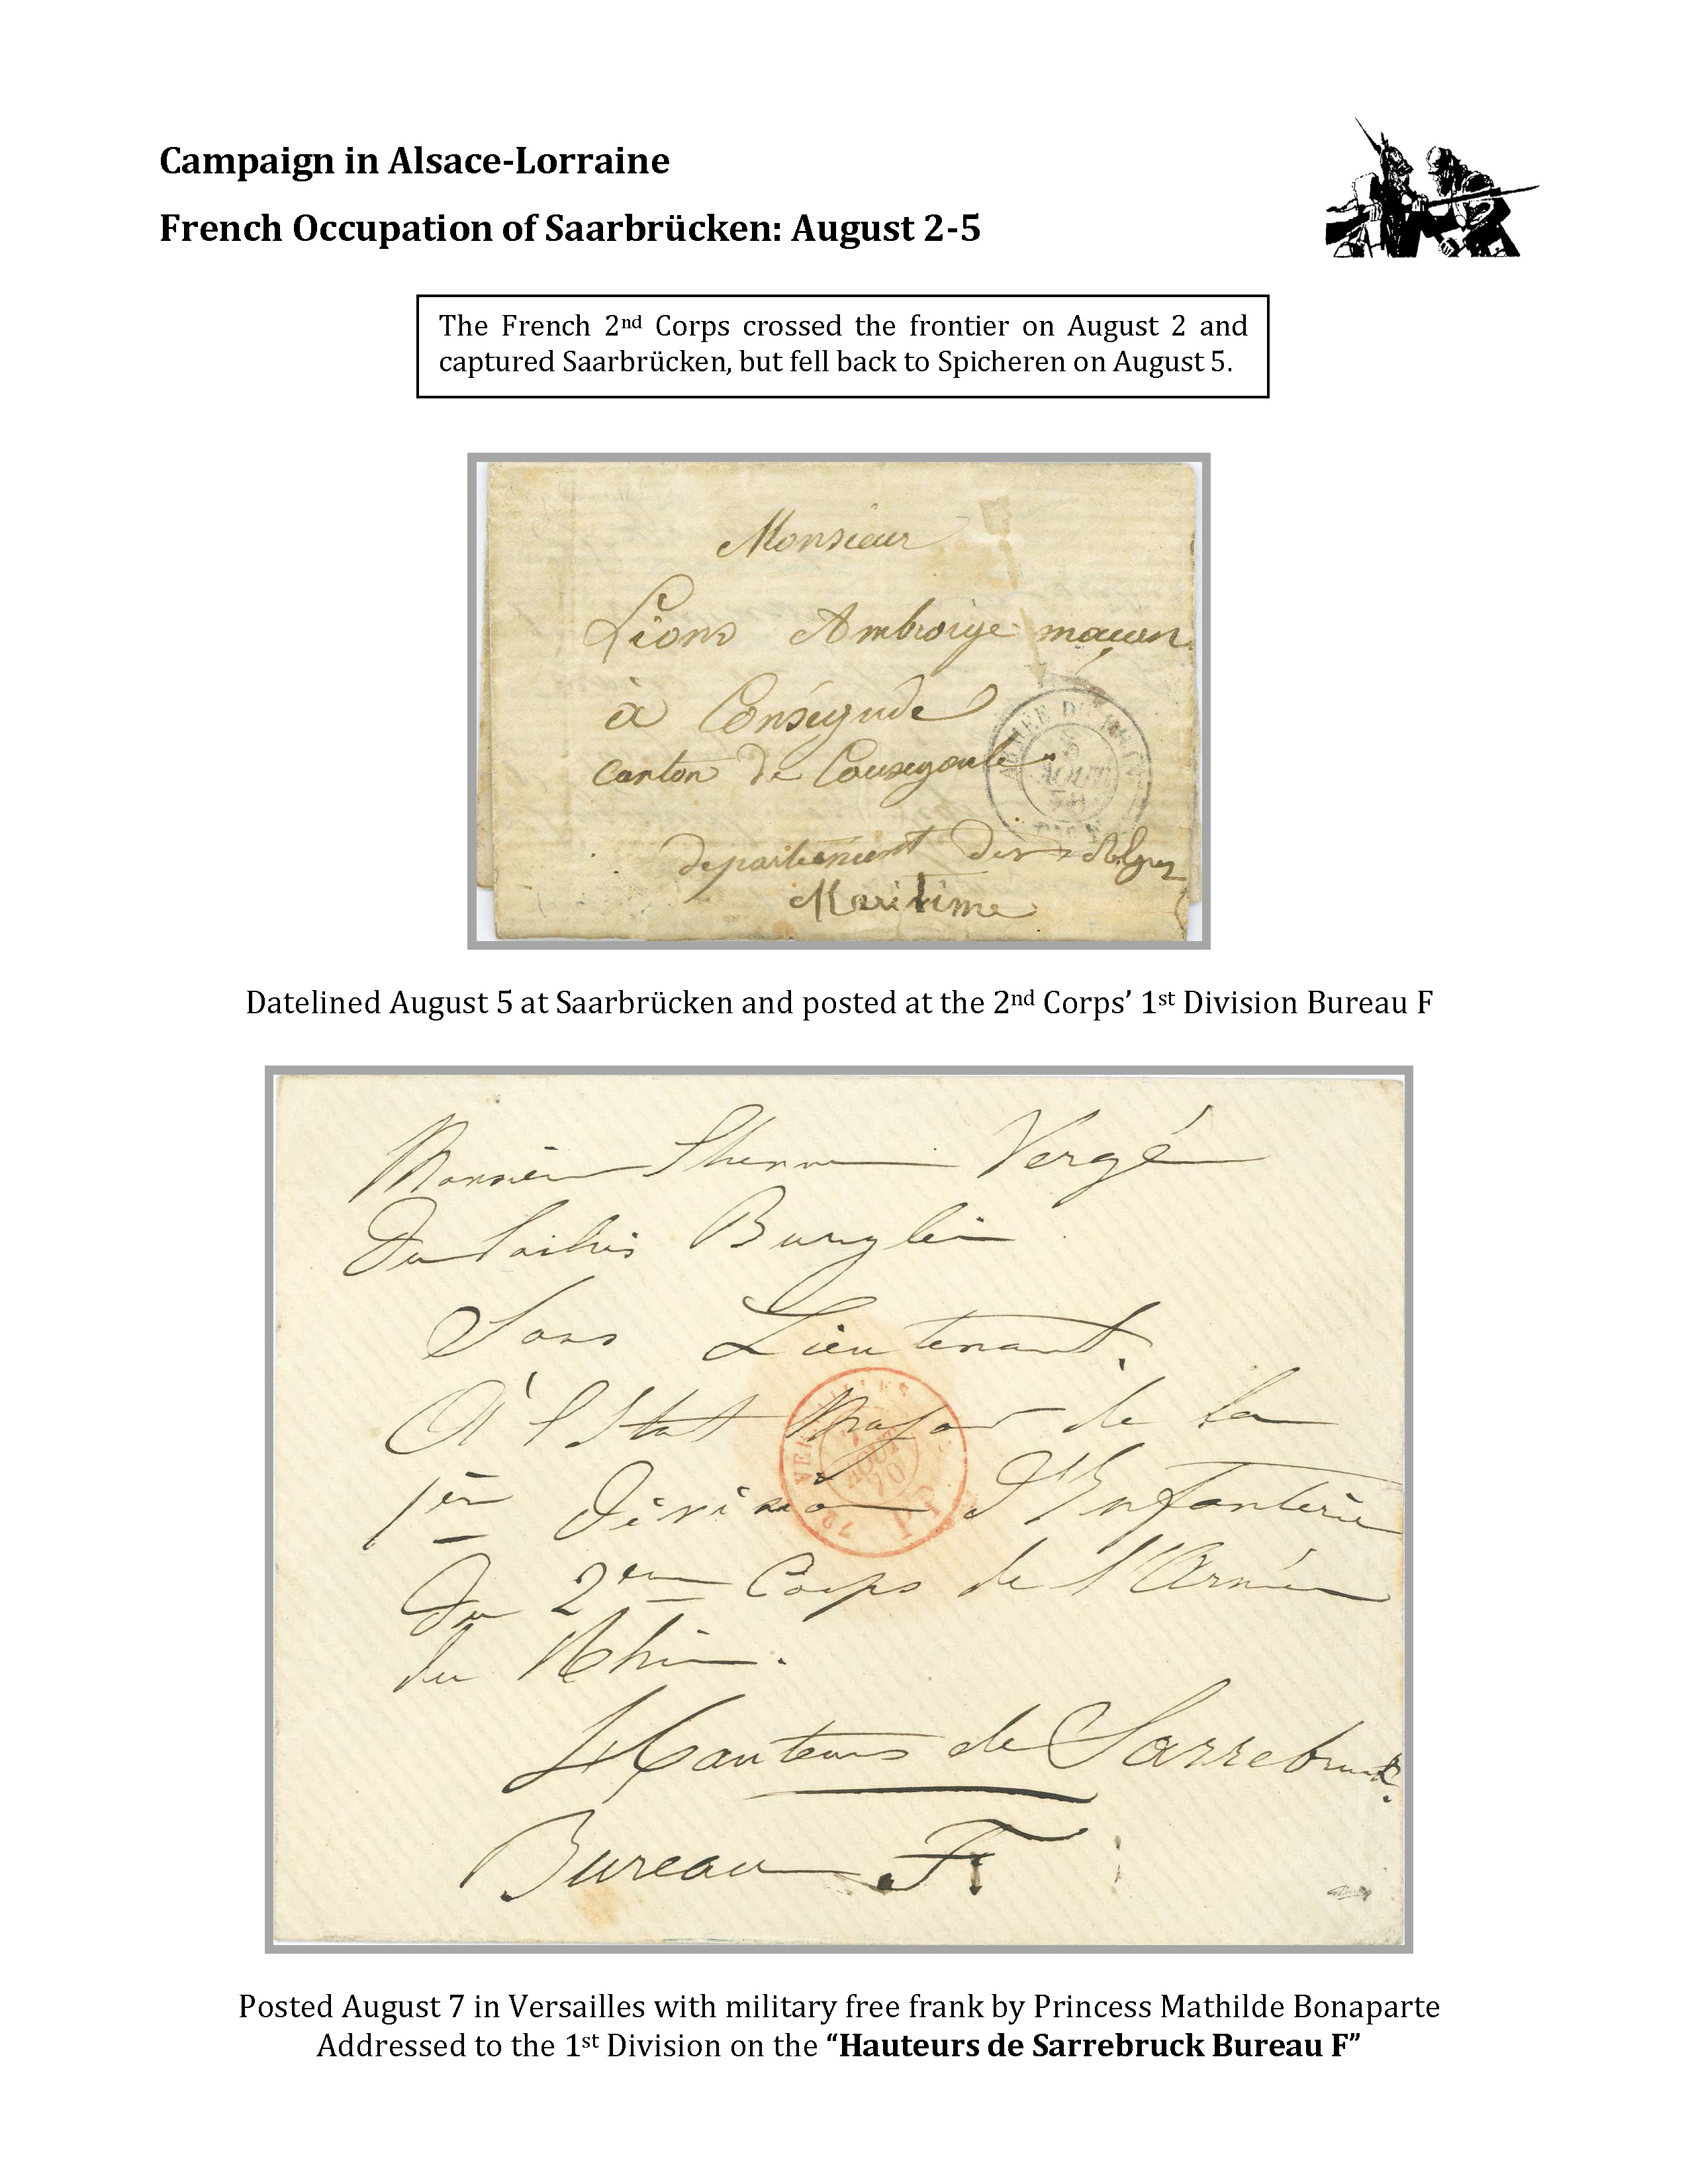 Campaign in Alsace-Lorraine
French Occupation of Saarbrücken: August 2-5
The French 2nd Corps crossed the frontier on August 2 and
captured Saarbrücken, but fell back to Spicheren on August 5.
Monsieur
Lions Ambroise maçon
à Conségude
canton de Cousegoule
ARMÉE DU RHIN
5
AOUT
departement des Alpes
Maritime
Datelined August 5 at Saarbrücken and posted at the 2nd Corps’ 1st Division Bureau F
Monsieur Vergé
du Burglin
Sous Lieutenant
A l'Etat Major de la
VERSAILLES
7
AOUT
70
1ère Division d'Infanterie
du 2eme Corps de l'Armée
du Rhin.
Hauteurs de Sarrebruck.
Bureau F.
Posted August 7 in Versailles with military free frank by Princess Mathilde Bonaparte
Addressed to the 1st Division on the “Hauteurs de Sarrebruck Bureau F”